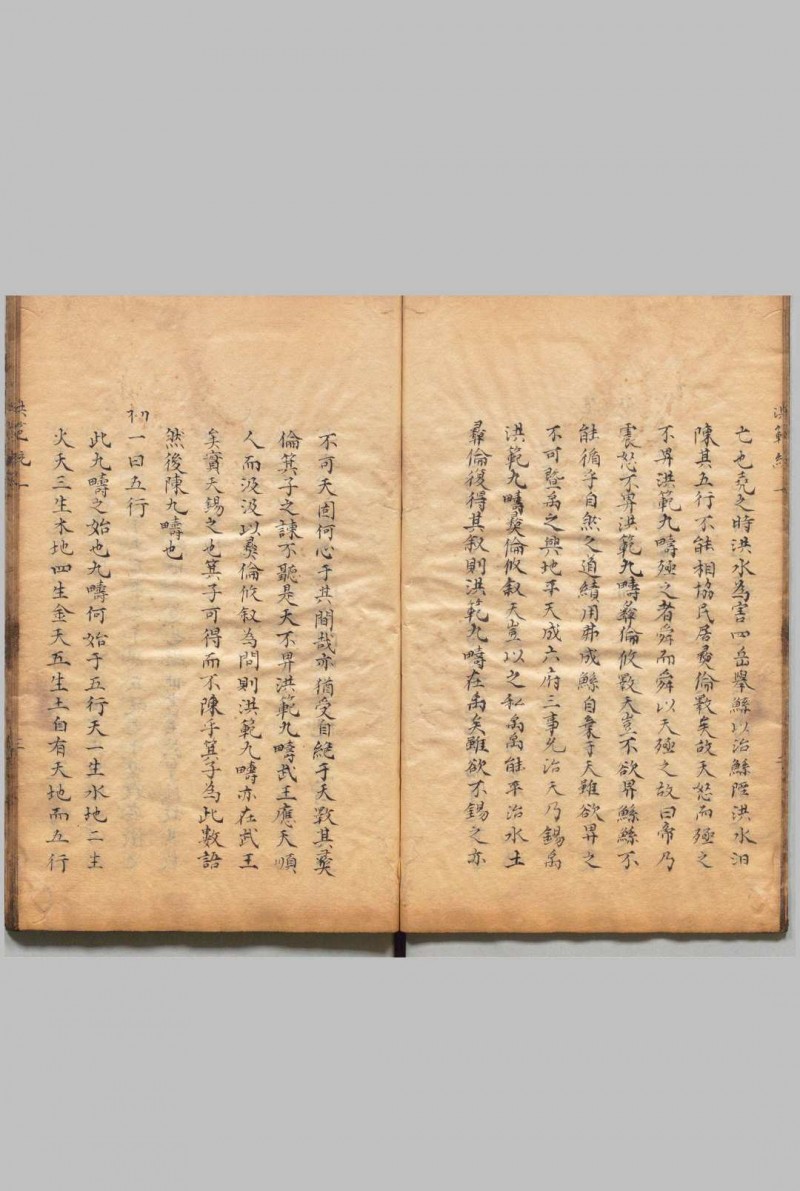 亡也堯之時洪水為害四岳舉鯀以治鯀陻洪水汩
陳其五行不能相協民居彞倫斁矣故天怒而殛之
不畀洪範九疇殛之者舜而舜以天殛之故曰帝乃
震怒不畀洪範九疇彞倫攸斁天豈不欲畀鯀鯀不
能循乎自然之道績用弗成鯀自棄于天雖欲畀之
不可曁禹之興地平天成六府三事允治天乃錫禹
洪範九疇彞倫攸敘天豈以之私禹禹能平治水土
彞倫復得其叙則洪範九疇在禹矣雖欲不錫之亦
不可天固何心于其間哉亦猶受自絕于天斁其彞
倫箕子之諫不聽是天不畀洪範九疇武王應天順
人而汲汲以彞倫攸叙為問則洪範九疇亦在武王
矣實天錫之也箕子可得而不陳乎箕子為此數語
然後陳九疇也
初一曰五行
此九疇之始也九疇何始于五行天一生水地二生
火天三生木地四生金天五生土自有天地而五行
洪範統一